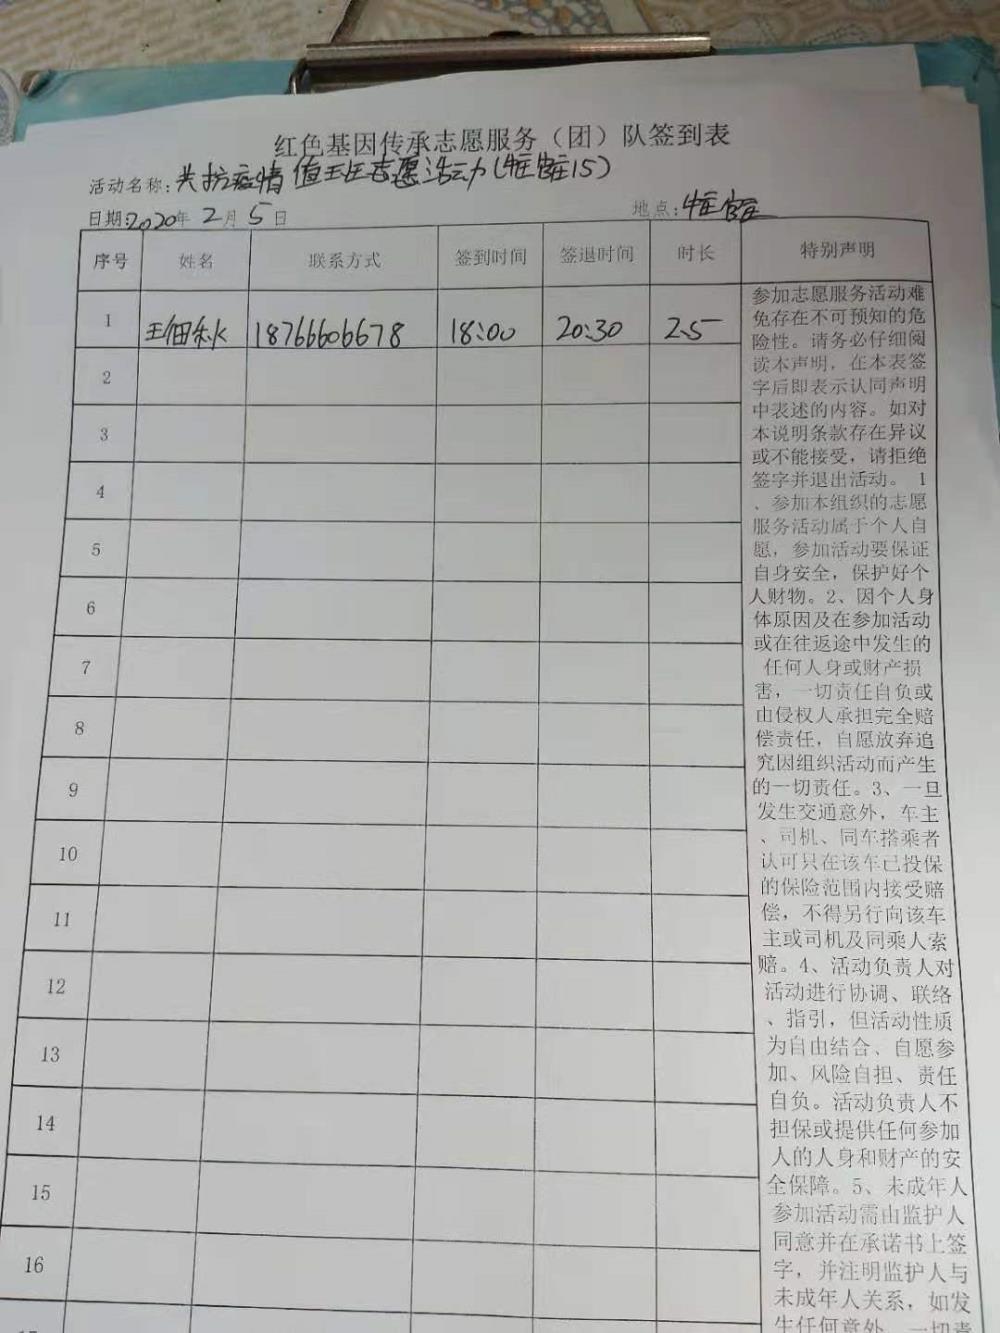 红色基因传承志愿服务（团）队签到表
活动名称：共抗疫情 值班志愿活动(牛庄官庄15)
日期：2020年2月5日
地点：
序号 姓名 联系方式 签到时间 签退时间 时长 特别声明
1 18766606678 18:00 20:30 2.5
2
3
4
5
6
7
8
9
10
11
12
13
14
15
16
参加志愿服务活动难
免存在不可预知的危
险性。请务必仔细阅
读本声明，在本表签
字后即表示认同声明
中表述的内容。如对
本说明条款存在异议
或不能接受，请拒绝
签字并退出活动。 1
、参加本组织的志愿
服务活动属于个人自
愿，参加活动要保证
自身安全，保护好个
人财物。2、因个人身
体原因及在参加活动
或在往返途中发生的
任何人身或财产损
害，一切责任自负或
由侵权人承担完全赔
偿责任，自愿放弃追
究因组织活动而产生
的一切责任。3、一旦
发生交通意外，车主
、司机、同车搭乘者
认可只在该车已投保
的保险范围内接受赔
偿，不得另行向该车
主或司机及同乘人索
赔。4、活动负责人对
活动进行协调、联络
、指引，但活动性质
为自由结合、自愿参
加、风险自担、责任
自负。活动负责人不
担保或提供任何参加
人的人身和财产的安
全保障。5、未成年人
参加活动需由监护人
同意并在承诺书上签
字，并注明监护人与
未成年人关系，如发
生任何意外，一切责